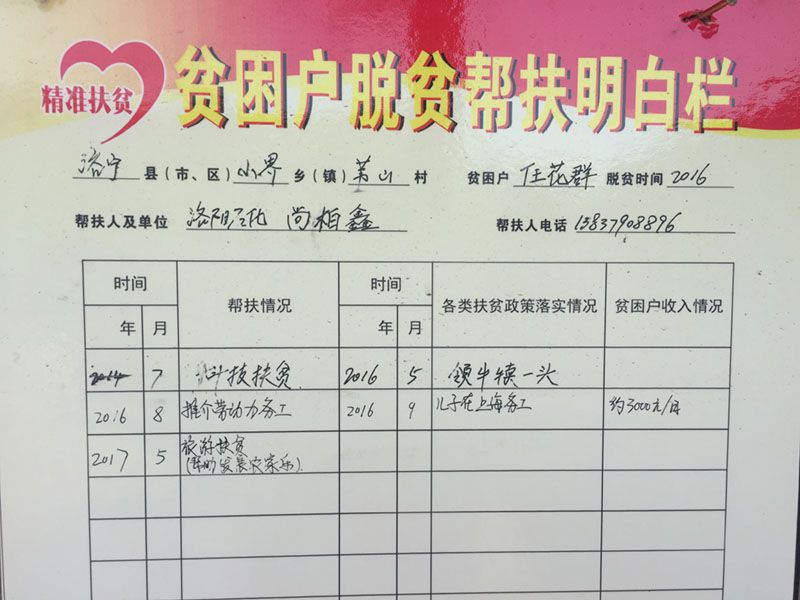 精准扶贫
贫困户脱贫帮扶明白栏
洛宁 县(市、区) 小界 乡(镇) 苇山 村 贫困户 任花群 脱贫时间 2016
帮扶人及单位 洛阳石化 尚柏鑫 帮扶人电话 13837908896
时间 帮扶情况 时间 各类扶贫政策落实情况 贫困户收入情况
年 月 年 月
7 科技扶贫 2016 5 领牛犊一头
2016 8 推介劳动力务工 2016 9 儿子在上海务工 约3000元/月
2017 5 旅游扶贫
(帮助发展农家乐)